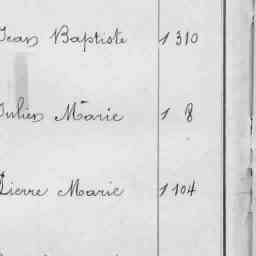 Jean Baptiste 1 310
Julien Marie 1 8
Pierre Marie 1 104